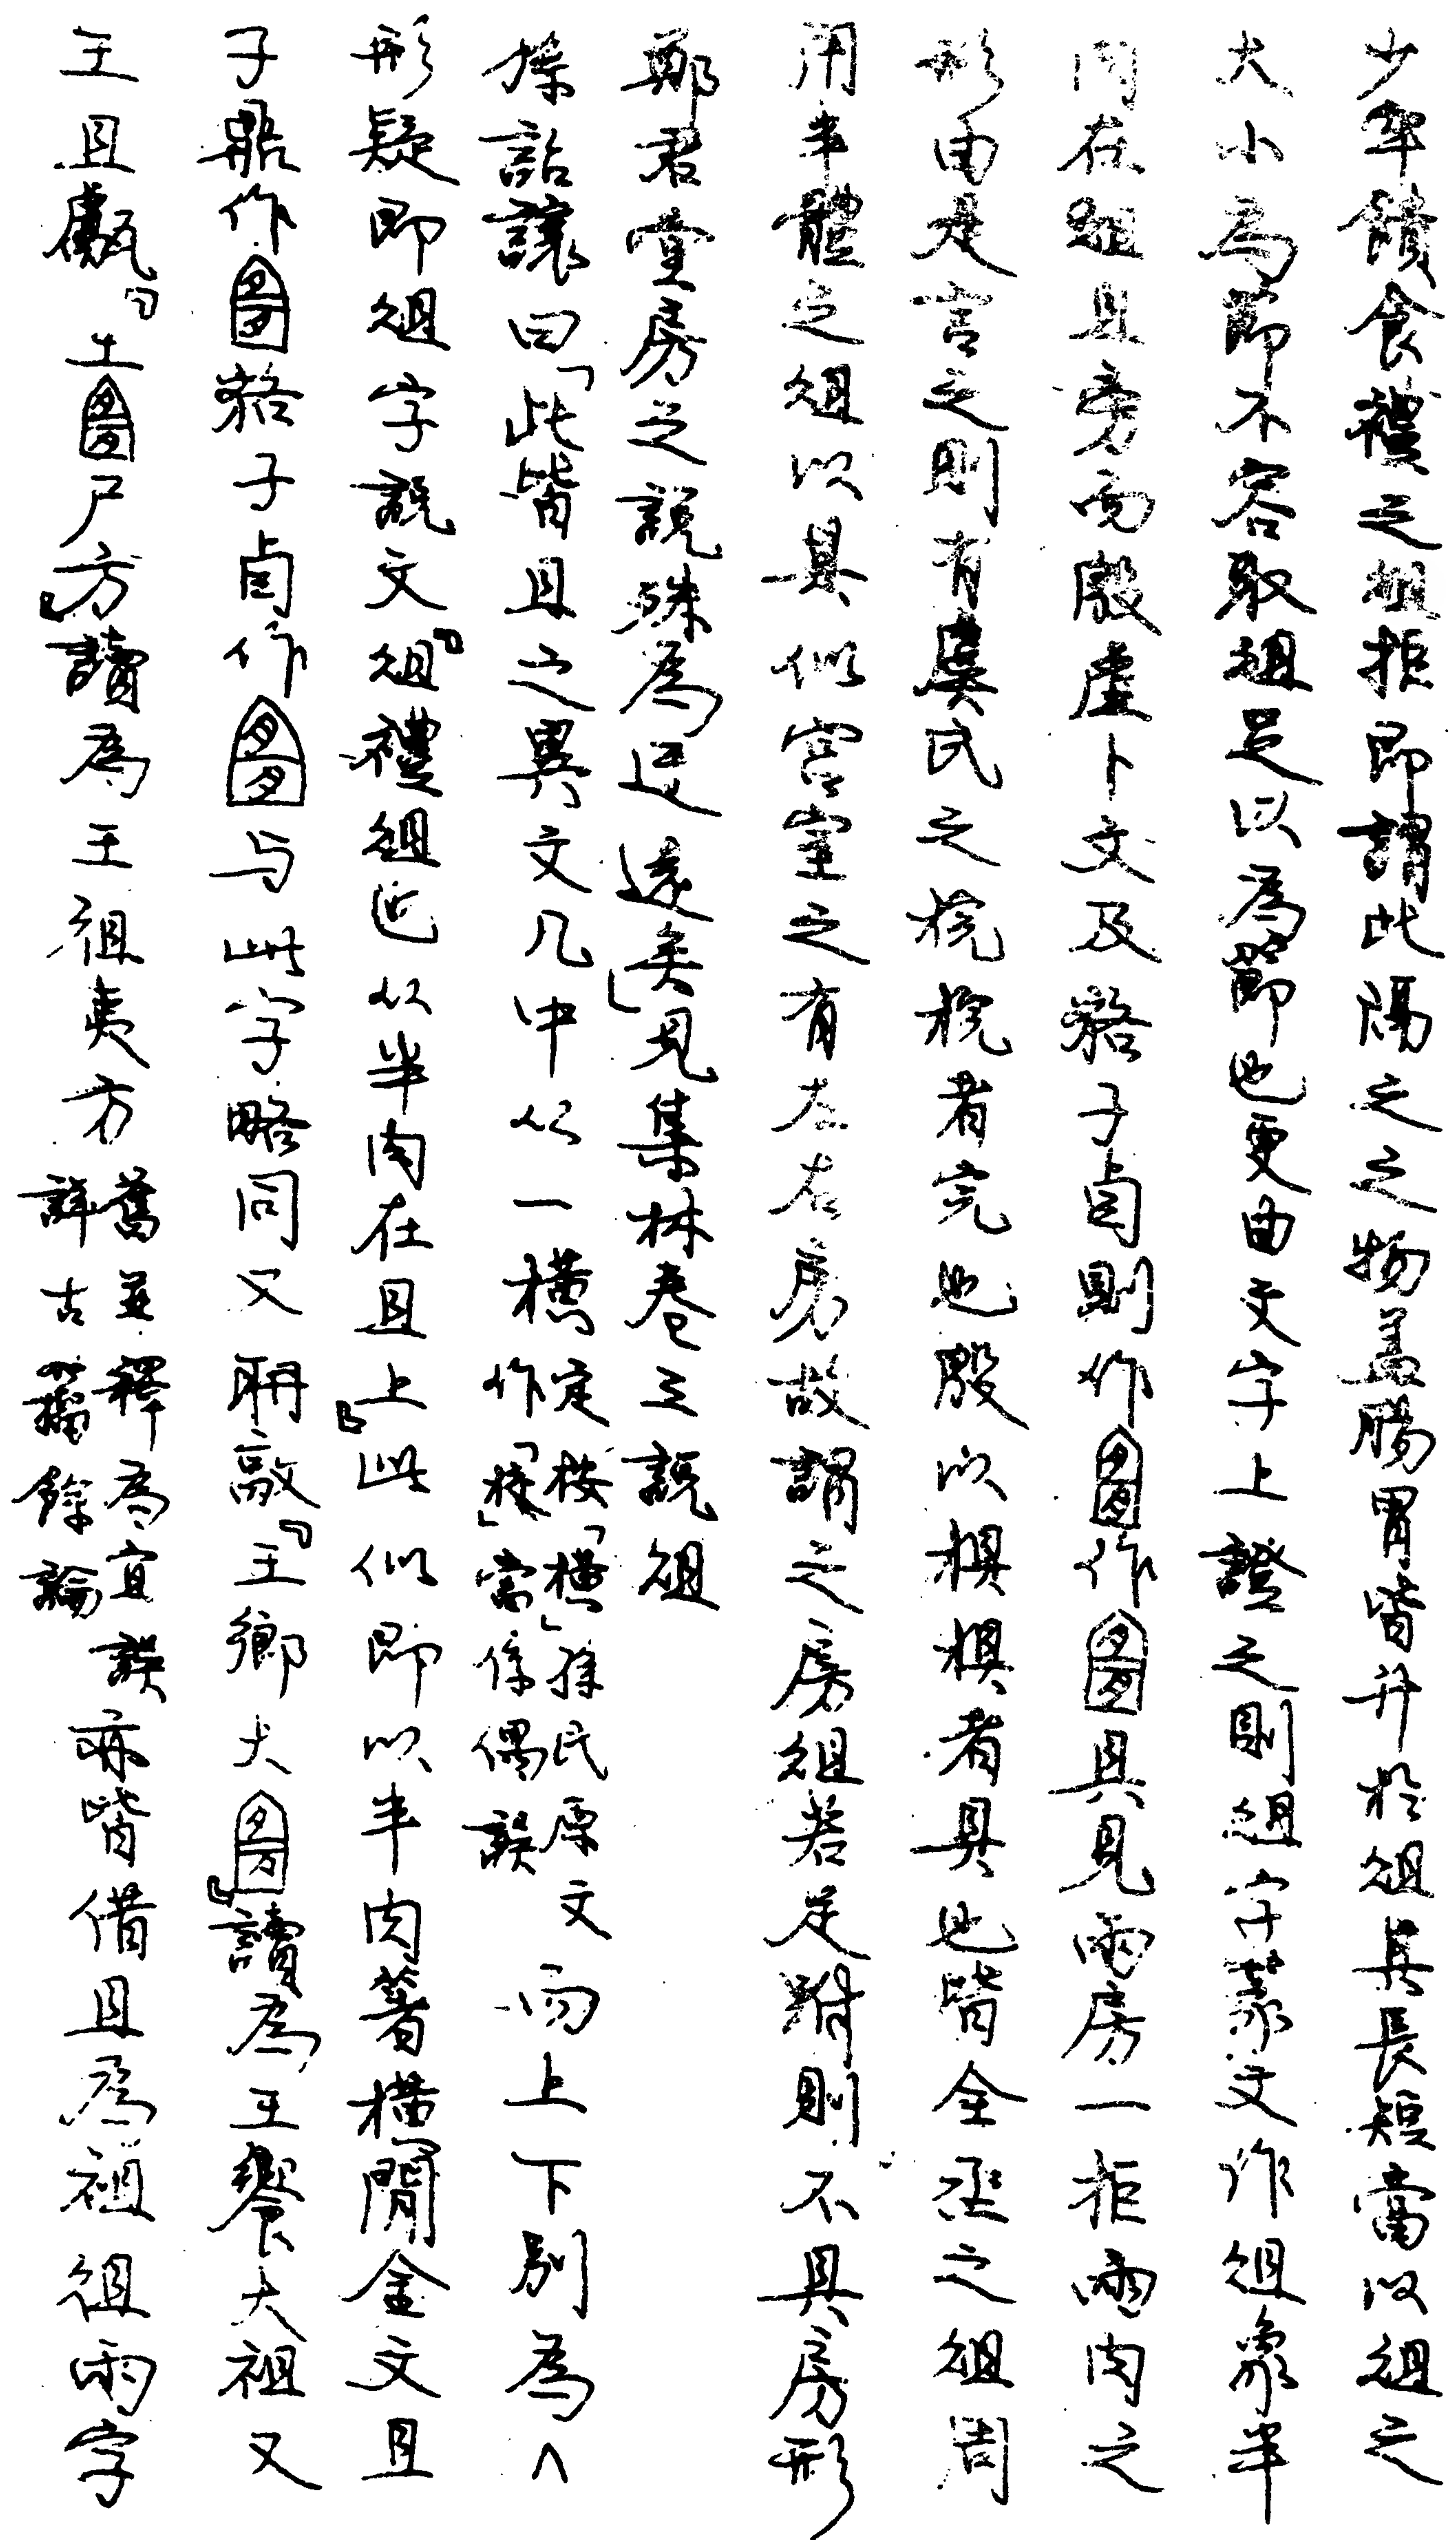 少牢饋食禮之俎拒即謂此隔之之物蓋腸胃皆升於俎其長短當以俎之
大小為節不容取俎足以為節也更由文字上證之則俎字篆文作俎象半
肉在俎且旁而殷虛卜文及貉子卣則作作具見兩房一拒兩肉之
形由是言之則有虞氏之梡梡者完也殷以椇椇者具也皆全烝之俎周
用半體之俎以其似宮室之有左右房故謂之房俎若足跗則不具房形
鄭君堂房之說殊為迂遠矣」見集林卷三說俎
孫詒讓曰「此皆且之異文几中从一橫定按「橫」孫氏原文作「㨾」當係偶誤而上下別為∧
形疑即俎字說文『俎禮俎也从半肉在且上』此似即以半肉著橫閒金文且
子鼎作貉子卣作与此字略同又聃敦『王鄉大』讀為王饗大祖又
王且甗『王尸方』讀為王徂夷方舊並釋為宜誤詳古籀餘論亦皆借且為祖徂兩字